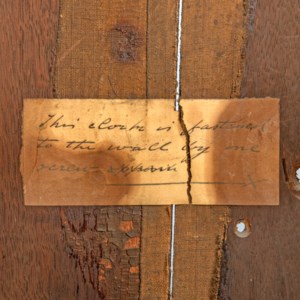 This clock is fastened
to the wall by one
screw